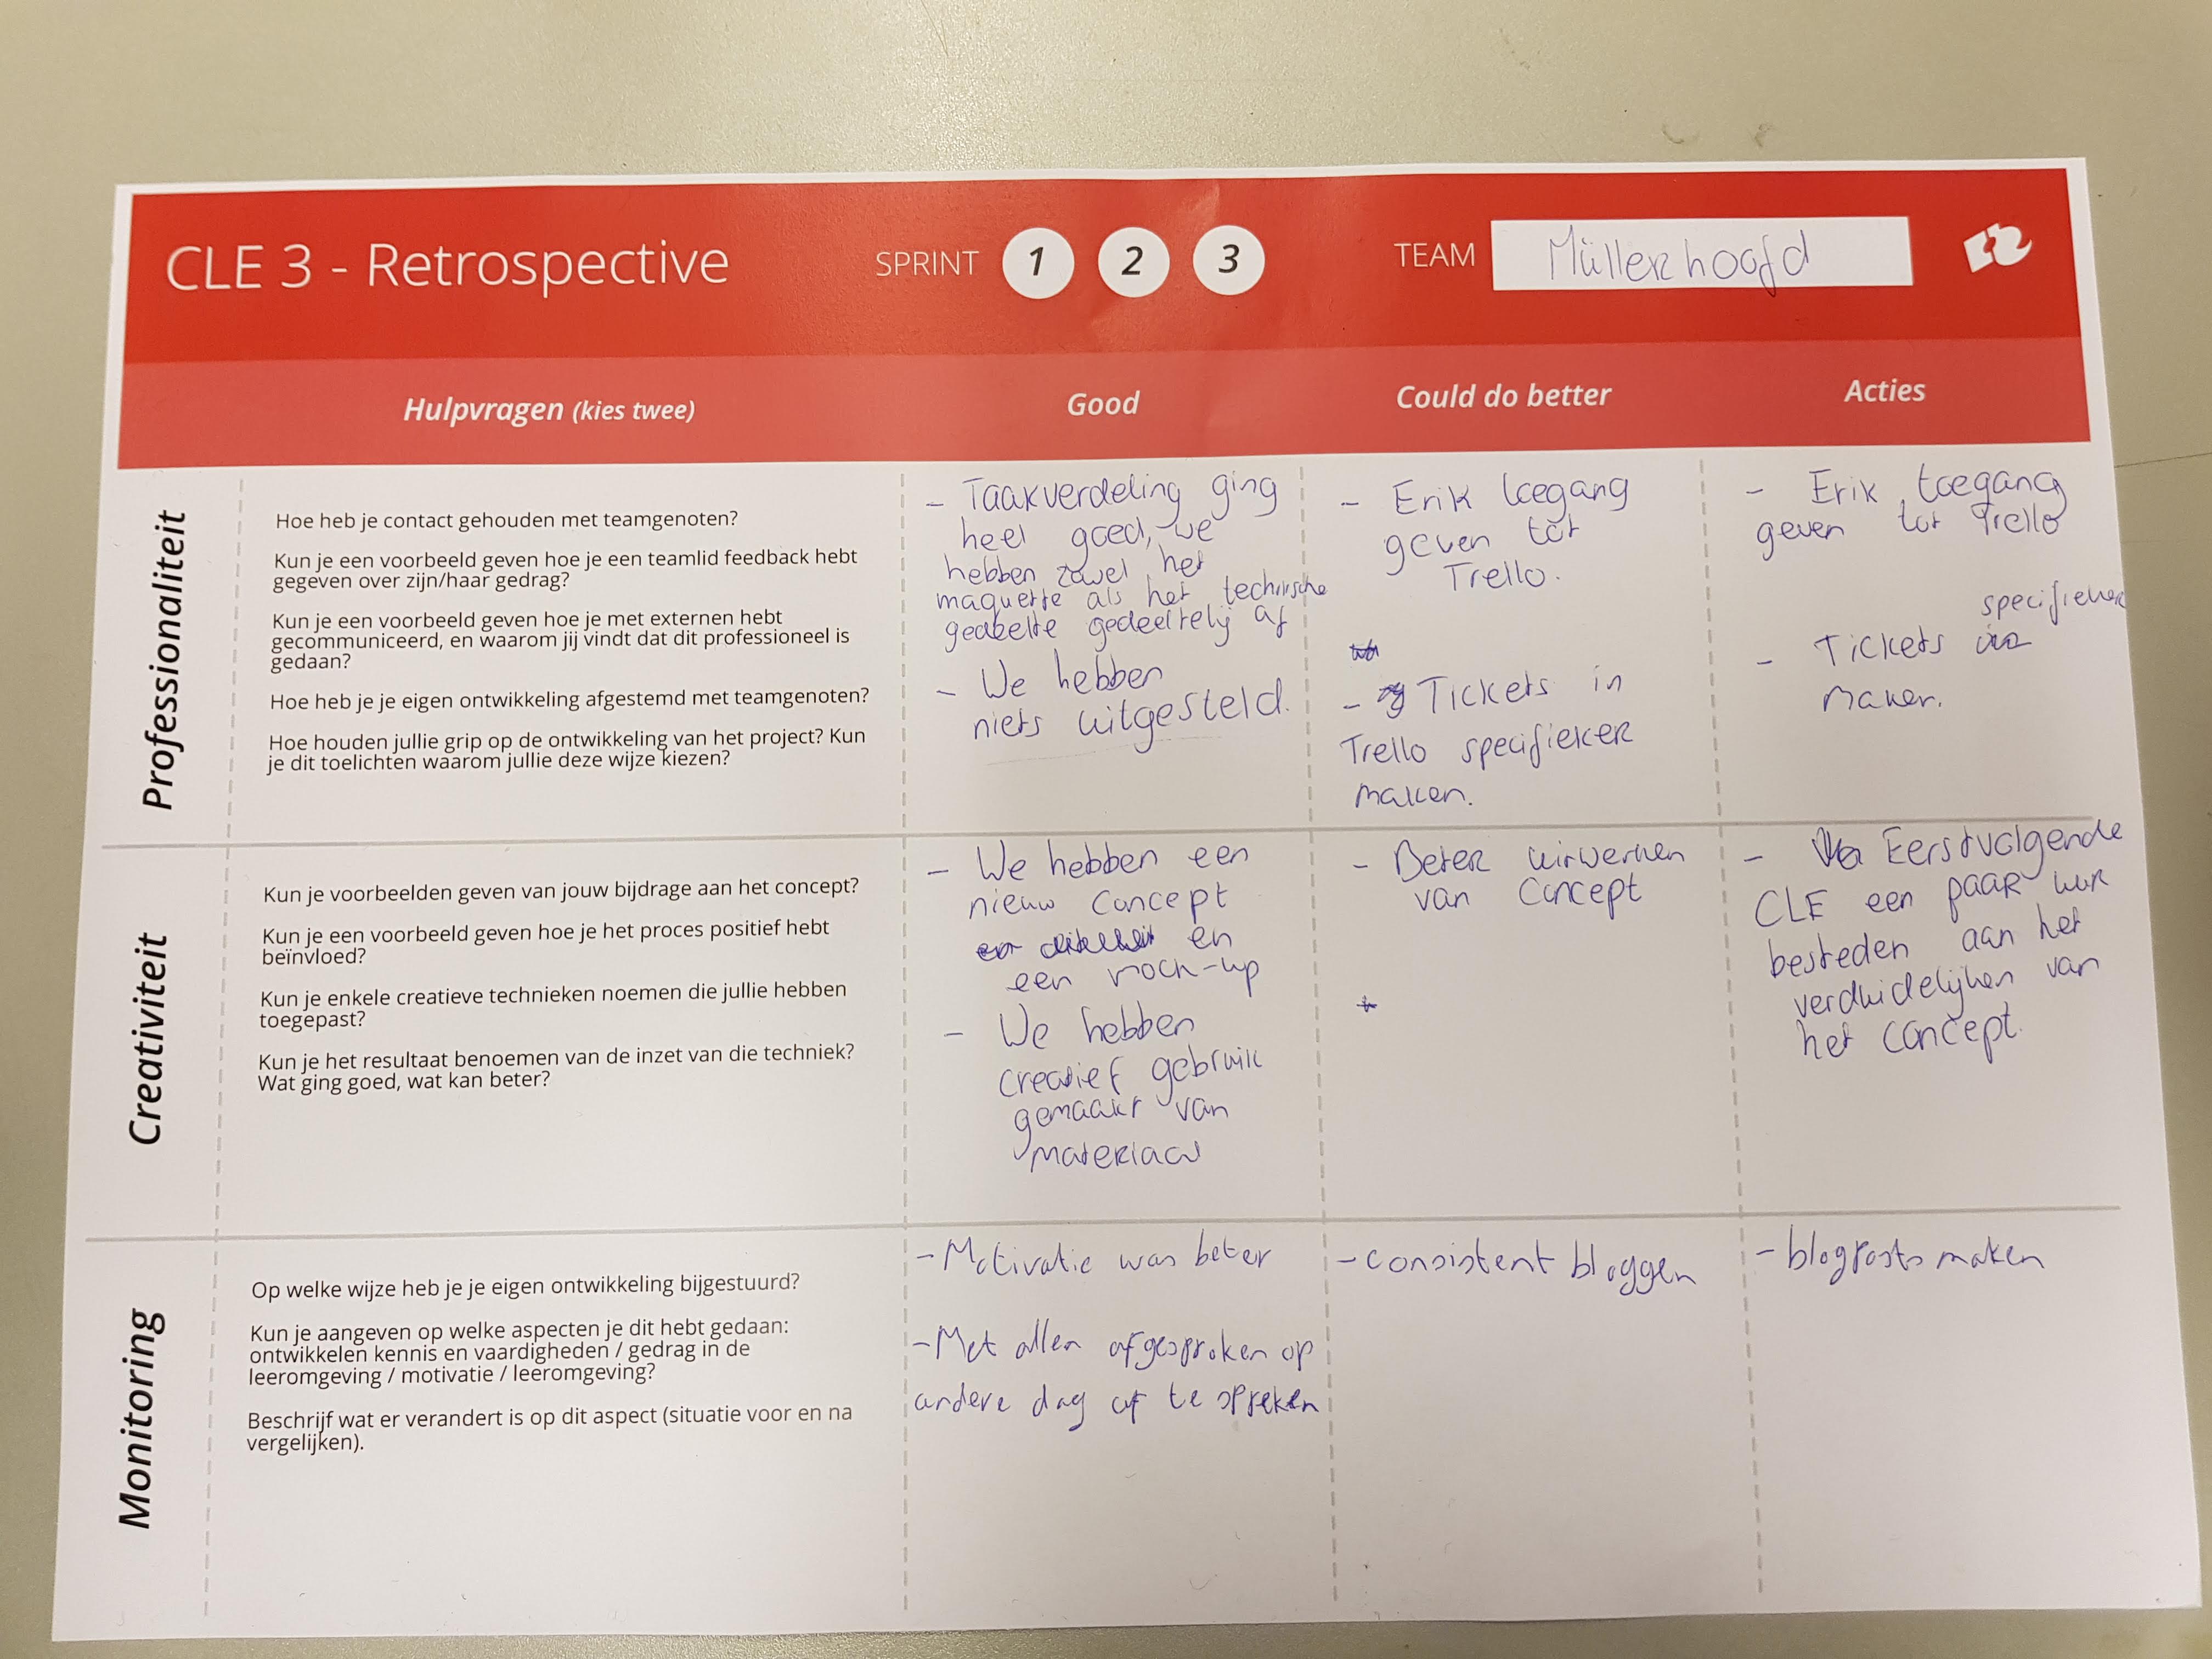 CLE 3 - Retrospective
SPRINT 1 2 3
TEAM Müllerhoofd
Hulpvragen (kies twee)
Good
Could do better
Acties
Professionaliteit
Hoe heb je contact gehouden met teamgenoten?
Kun je een voorbeeld geven hoe je een teamlid feedback hebt
gegeven over zijn/haar gedrag?
Kun je een voorbeeld geven hoe je met externen hebt
gecommuniceerd, en waarom jij vindt dat dit professioneel is
gedaan?
Hoe heb je je eigen ontwikkeling afgestemd met teamgenoten?
Hoe houden jullie grip op de ontwikkeling van het project? Kun
je dit toelichten waarom jullie deze wijze kiezen?
- Taakverdeling ging
heel goed, we
hebben zowel het
maquette als het technische
gedeelte gedeeltelij af
- We hebben
niets uitgesteld.
- Erik toegang
geven tot
Trello.
- Tickets in
Trello specifieker
maken.
- Erik toegang
geven tot Trello
- Tickets specifieker
maken.
Creativiteit
Kun je voorbeelden geven van jouw bijdrage aan het concept?
Kun je een voorbeeld geven hoe je het proces positief hebt
beïnvloed?
Kun je enkele creatieve technieken noemen die jullie hebben
toegepast?
Kun je het resultaat benoemen van de inzet van die techniek?
Wat ging goed, wat kan beter?
- We hebben een
nieuw concept
en
een mock-up
- We hebben
creatief gebruik
gemaakt van
materiaal
- Beter uitwerken
van concept
- Eerstvolgende
CLE een paar uur
besteden aan het
verduidelijken van
het concept.
Monitoring
Op welke wijze heb je je eigen ontwikkeling bijgestuurd?
Kun je aangeven op welke aspecten je dit hebt gedaan:
ontwikkelen kennis en vaardigheden / gedrag in de
leeromgeving / motivatie / leeromgeving?
Beschrijf wat er verandert is op dit aspect (situatie voor en na
vergelijken).
- Motivatie was beter
- Met allen afgesproken op
andere dag af te spreken
- consistent bloggen
- blogposts maken